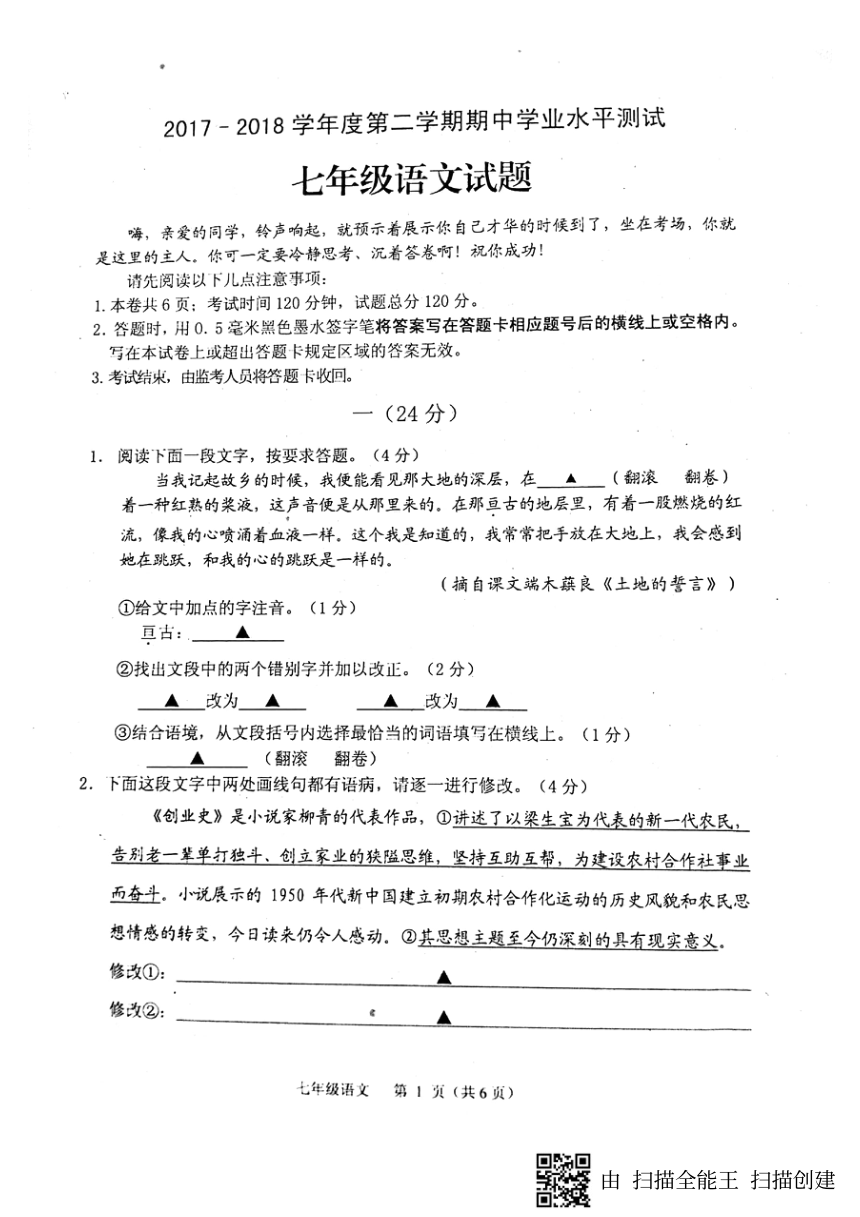 2017-2018 学年度第二学期期中学业水平测试
七年级语文试题
嗨，亲爱的同学，铃声响起，就预示着展示你自己才华的时候到了，坐在考场，你就
是这里的主人。你可一定要冷静思考、沉着答卷啊！祝你成功！
请先阅读以下几点注意事项：
1.本卷共6页；考试时间120分钟，试题总分120分。
2.答题时，用0.5毫米黑色墨水签字笔将答案写在答题卡相应题号后的横线上或空格内。
写在本试卷上或超出答题卡规定区域的答案无效。
3.考试结束，由监考人员将答题卡收回。
一（24分）
1. 阅读下面一段文字，按要求答题。（4分）
当我记起故乡的时候，我便能看见那大地的深层，在____▲____（翻滚 翻卷）
着一种红熟的浆液，这声音便是从那里来的。在那亘古的地层里，有着一股燃烧的红
流，像我的心喷涌着血液一样。这个我是知道的，我常常把手放在大地上，我会感到
她在跳跃，和我的心的跳跃是一样的。
（摘自课文端木蕻良《土地的誓言》）
①给文中加点的字注音。（1分）
亘古：____▲____
②找出文段中的两个错别字并加以改正。（2分）
____▲____改为____▲____ ____▲____改为____▲____
③结合语境，从文段括号内选择最恰当的词语填写在横线上。（1分）
____▲____（翻滚 翻卷）
2. 下面这段文字中两处画线句都有语病，请逐一进行修改。（4分）
《创业史》是小说家柳青的代表作品，①讲述了以梁生宝为代表的新一代农民，
告别老一辈单打独斗、创立家业的狭隘思维，坚持互助互帮，为建设农村合作社事业
而奋斗。小说展示的1950年代新中国建立初期农村合作化运动的历史风貌和农民思
想情感的转变，今日读来仍令人感动。②其思想主题至今仍深刻的具有现实意义。
修改①：____▲____
修改②：____▲____
七年级语文 第1页（共6页）
由 扫描全能王 扫描创建